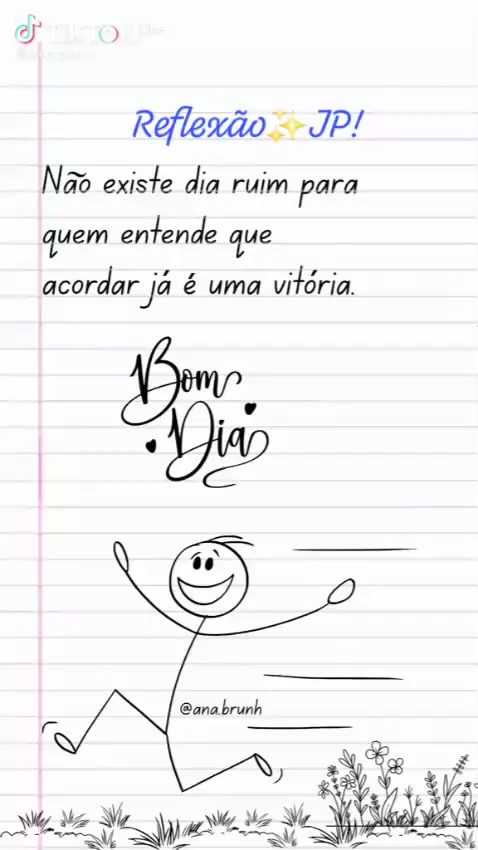 TikTok
Reflexão✨JP!
Não existe dia ruim para
quem entende que
acordar já é uma vitória.
Bom
Dia
@ana.brunh